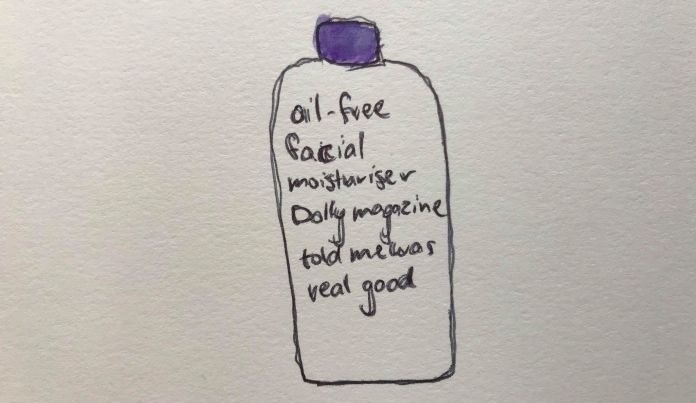 oil-free
facial
moisturiser
Dolly magazine
told me was
real good